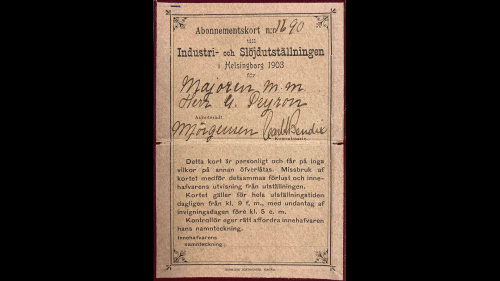 Abonnementskort n:r 1690
till
Industri- och Slöjdutställningen
i Helsingborg 1903
för
Majoren m. m.
Herr G. Peyron
Mjörgensen Carl Bendix
Kommissarie.
Detta kort är personligt och får på inga
vilkor på annan öfverlåtas. Missbruk af
kortet medför detsammas förlust och inne-
hafvarens utvisning från utställningen.
Kortet gäller för hela utställningstiden
dagligen från kl. 9 f. m., med undantag af
invigningsdagen före kl. 5 e. m.
Kontrollör eger rätt affordra innehafvaren
hans namnteckning.
Innehafvarens
namnteckning: